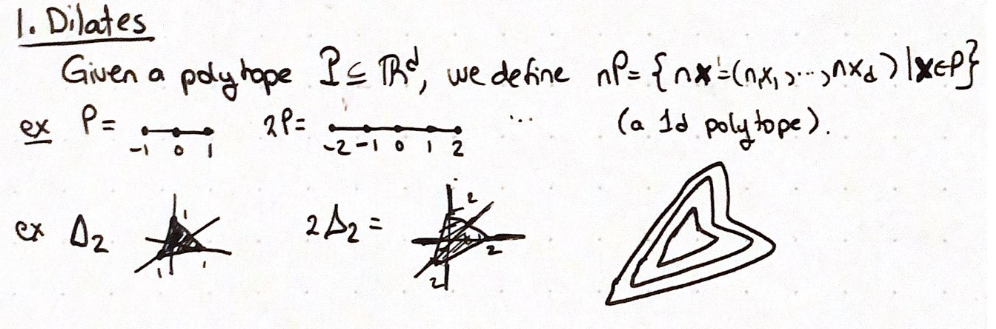 1. Dilates
Given a polytope P ⊆ ℝᵈ, we define nP = { nx = (nx₁, ..., nx_d) | x ∈ P }
ex P = -1 0 1 2P = -2 -1 0 1 2 ... (a 1d polytope).
ex Δ₂ 1 1 1 2Δ₂ = 2 2 2